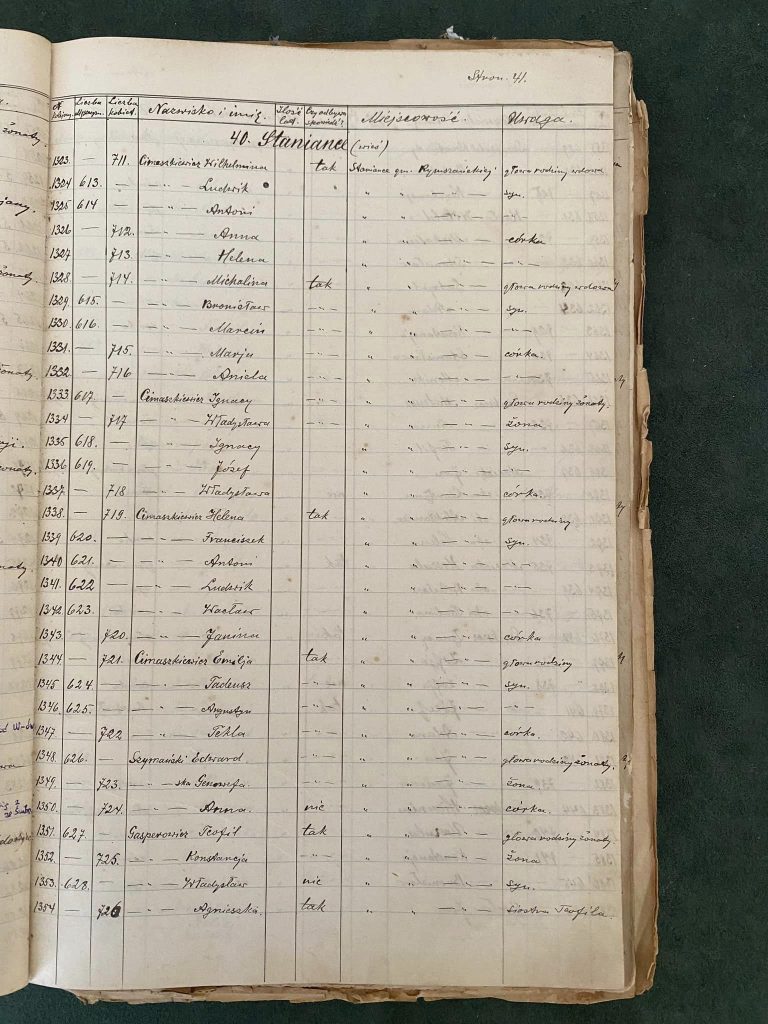 Stron. 41.
№ kolejny. Liczba Mężczyzn. Liczba kobiet. Nazwisko i imię. Ilość lat. Czy odbywa spowiedź? Miejscowość. Uwaga.
40. Staniance (wieś)
1323. — 711. Cimaszkiewicz Wilhelmina tak Staniance gm. Rymszańskiej głowa rodziny wdowa
1324 613. — — „ — Ludwik — „ — „ „ — „ — syn.
1325 614 — — „ — Antoni — „ — „ „ — „ —
1326 — 712. — „ — Anna — „ — „ „ — „ — córka
1327 — 713. — „ — Helena — „ — „ „ — „ — — „ —
1328 — 714. — „ — Michalina tak „ „ — „ — głowa rodziny wdowa
1329 615. — — „ — Bronisław — „ — „ „ — „ — syn.
1330. 616. — — „ — Marcin — „ — „ „ — „ — — „ —
1331. — 715. — „ — Marja — „ — „ „ — „ — córka.
1332 — 716 — „ — Aniela — „ — „ „ — „ — — „ —
1333 617. — Cimaszkiewicz Ignacy — „ — „ „ — „ — głowa rodziny żonaty.
1334 — 717 — „ — Władysława — „ — „ „ — „ — żona
1335 618. — — „ — Ignacy — „ — „ „ — „ — syn.
1336 619. — — „ — Józef — „ — „ „ — „ — — „ —
1337. — 718 — „ — Władysława — „ — „ „ — „ — córka.
1338. — 719. Cimaszkiewicz Helena tak „ „ — „ — głowa rodziny
1339 620. — — „ — Franciszek — „ — „ „ — „ — syn.
1340 621. — — „ — Antoni — „ — „ „ — „ — — „ —
1341. 622 — — „ — Ludwik — „ — „ „ — „ — — „ —
1342. 623. — — „ — Wacław — „ — „ „ — „ — — „ —
1343. — 720. — „ — Janina — „ — „ „ — „ — córka
1344. — 721. Cimaszkiewicz Emilja tak „ „ — „ — głowa rodziny
1345 624. — — „ — Tadeusz — „ — „ „ — „ — syn.
1346. 625. — — „ — Augustyn — „ — „ „ — „ — — „ —
1347 — 722 — „ — Tekla — „ — „ „ — „ — córka.
1348. 626. — Szymański Edward — „ — „ „ — „ — głowa rodziny żonaty.
1349. — 723. — „ — ska Genowefa — „ — „ „ — „ — żona.
1350. — 724. — „ — Anna nie „ „ — „ — córka.
1351. 627. — Gasperowicz Teofil tak „ „ — „ — głowa rodziny żonaty.
1352. — 725. — „ — Konstancja — „ — „ „ — „ — żona
1353. 628. — — „ — Władysław nie „ „ — „ — syn.
1354 — 726 — „ — Agnieszka. tak „ „ — „ — siostra Teofila.